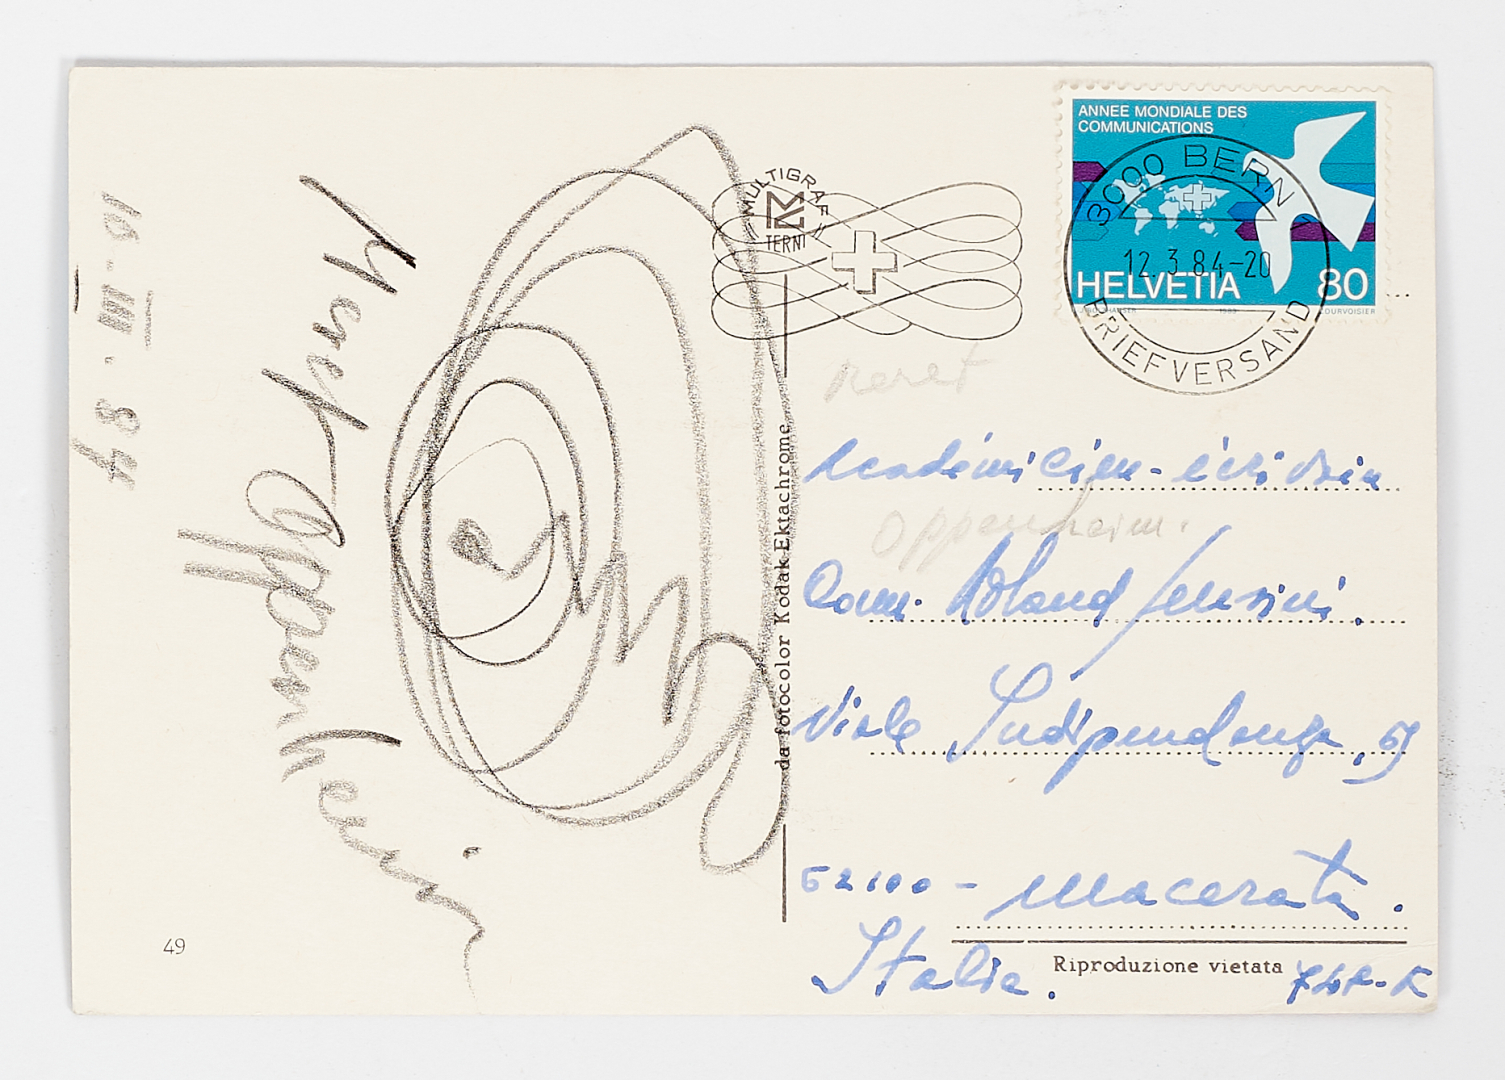 10. III. 84
Meret Oppenheim
49
MULTIGRAF
TERNI
da fotocolor Kodak Ektachrome
ANNEE MONDIALE DES
COMMUNICATIONS
HELVETIA 80
COURVOISIER
3000 BERN 1
12.3.84-20
BRIEFVERSAND
meret
Académicien-écrivain
Oppenheim.
Com. Roland Sensini.
Viale Indipendenza,
62100 - Macerata.
Italia.
Riproduzione vietata